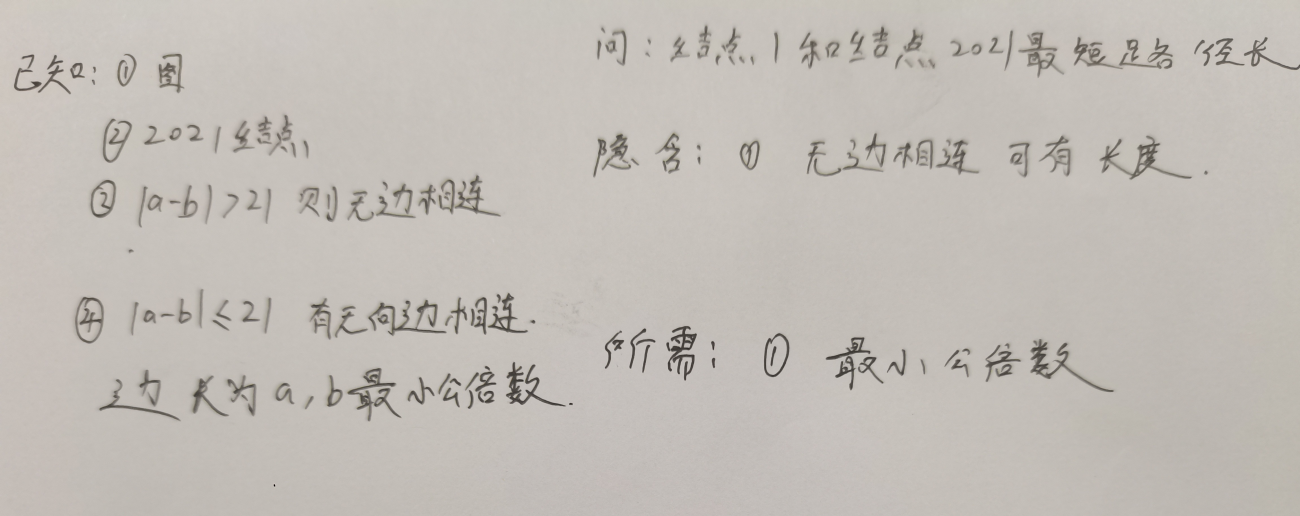 已知：① 图
② 2021结点
③ |a-b|>21 则无边相连
④ |a-b|≤21 有无向边相连.
边长为a,b最小公倍数.
问：结点1和结点2021最短路径长
隐含：① 无边相连 可有 长度.
所需：① 最小公倍数